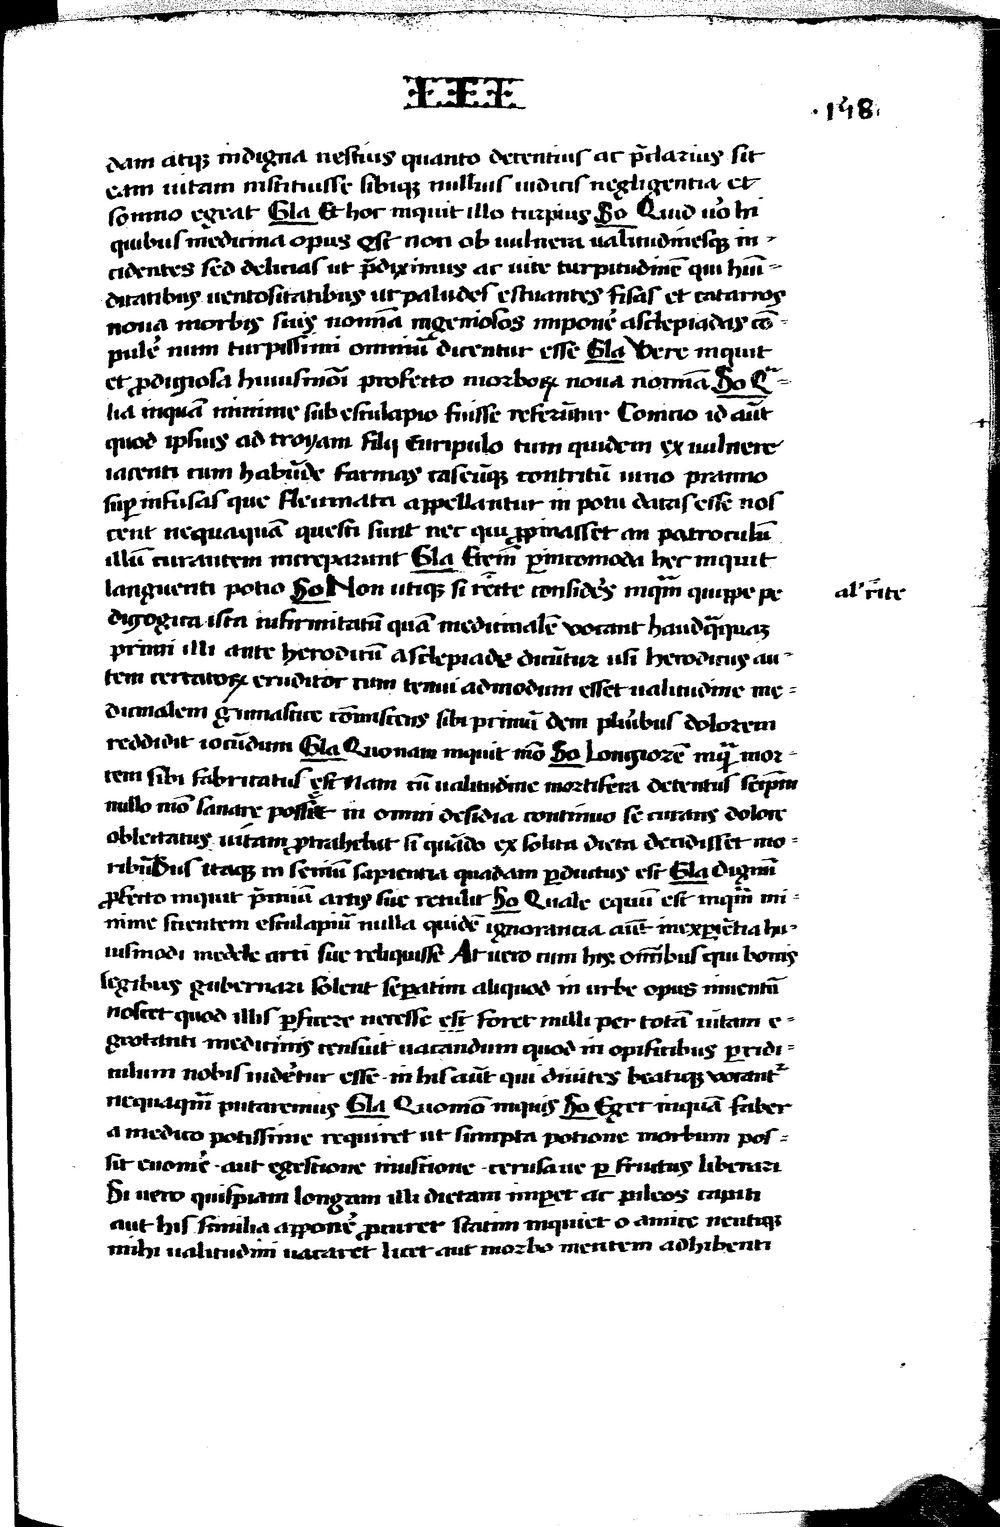 IIII
·148·
dam atqꝫ indigna nescius quanto decentius ac p̄clarius sit
eam uitam instituisse sibiqꝫ nullius iudicis negligentia et
somno egeat Gla Et hoc inquit illo turpius So Quid u̓o hi
quibus medicina opus est non ob uulnera ualitudinesqꝫ in-
cidentes sed delicias ut p̄diximus ac uite turpitudinē qui hūi=
ditatibus uentositatibus ut paludes estuantes fisas et catarros
noua morbis suis nomīa ingeniosos impone̓ asclepiadas cō=
pule̓ num turpissimi omniū dicentur esse Gla Vere inquit
et ꝓdigiosa huiusmōi profecto morboꝝ noua nomīa So Q=
lia inquā minime sub esculapio fuisse referūtur Conicio id aūt
quod ipsius ad troyam filij Euripulo tum quidem ex uulnere
iacenti cum habūde farinas caseūqꝫ contritū uino pranno
suꝑ infusas que fleumata appellantur in potu datas esse nos
cent nequaquā questi sunt nec qui ꝓpinasset an patroculū
illū curantem increparunt Gla Etem̄ ꝑincomoda hec inquit
languenti potio So Non utiqꝫ si rēcte conside̓s inqm̄ quippe pe
al' rīte
digogica ista infirmitatū quā medicinalē vocant haudq̄quaꝫ
primi illi ante herodicū asclepiade dicūtur usi herodicus au-
tem certatoꝝ eruditor cum tenui admodum esset ualitudine me=
dicinalem gimnastice cōmiscens sibi primū dem plu̓ibus dolorem
reddidit iocūdum Gla Quonam inquit mō So Longiorē inq̄ mor-
tem sibi fabricatus est Nam cū ualitudine mortifera detentus seip̄m
nullo mō sanare posset in omni desidia continuo se curans dolore
oblectatus uitam ꝓtrahebat si quādo ex solita dieta decidisset mo=
ribūdus itaqꝫ in seniū sapientia quadam ꝑductus est Gla Dignū
ꝓfecto inquit p̄miū artis sue retulit So Quale equū est inqm̄ mi=
nime scientem esculapiū nulla quidē ignorancia aūt inexꝑiētia hu-
iusmodi medele arti sue reliquisse At uero cum his om̄ibus qui bonis
legibus gubernari solent seꝑatim aliquod in urbe opus iniunctū
nosceret quod illis ꝑficere necesse est foret nulli per totā uitam e=
grotanti medicinis censuit uacandum quod in opificibus ꝑridi=
culum nobis uide̓tur esse in his aūt qui diuites beatiqꝫ vocant᷑
nequaqm̄ putaremus Gla Quomō inquis So Eger inquā faber
a medico potissime requiret ut sumpta potione morbum pos=
sit euome̓ aut egestione iustione cerusaue ꝑ fructus liberari
Si uero quispiam longam illi dietam imꝑet ac pileos capiti
aut his similia appone̓ ꝓcuret statim inquiet o amice neutiqꝫ
mihi ualitudini uacaret licet aut morbo mentem adhibenti